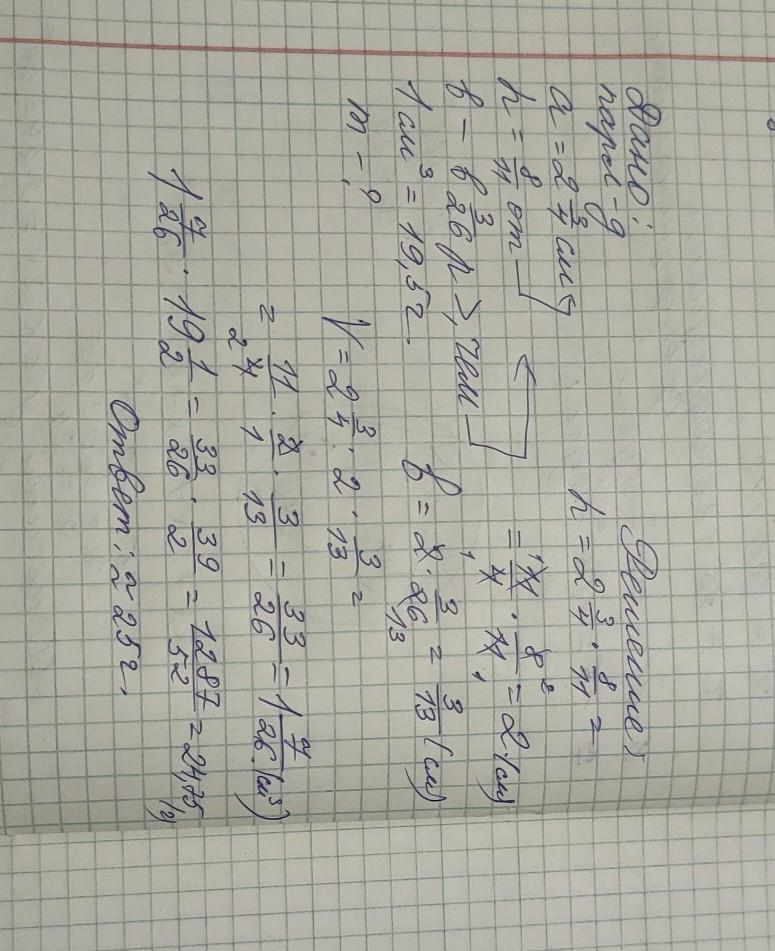 Дано:
парал-д
a = 2 3/4 см
h = 8/11 от
b - в 3/26 р >, чем
1 см³ = 19,5 г.
m - ?
Решение:
h = 2 3/4 · 8/11 =
= 11/4 · 8/11 = 2 (см)
b = 2 · 3/26 = 3/13 (см)
V = 2 3/4 · 2 · 3/13 =
= 11/4 · 2/1 · 3/13 = 33/26 = 1 7/26 (см³)
1 7/26 · 19 1/2 = 33/26 · 39/2 = 1287/52 = 24,75 (г)
Ответ: ≈ 25 г.